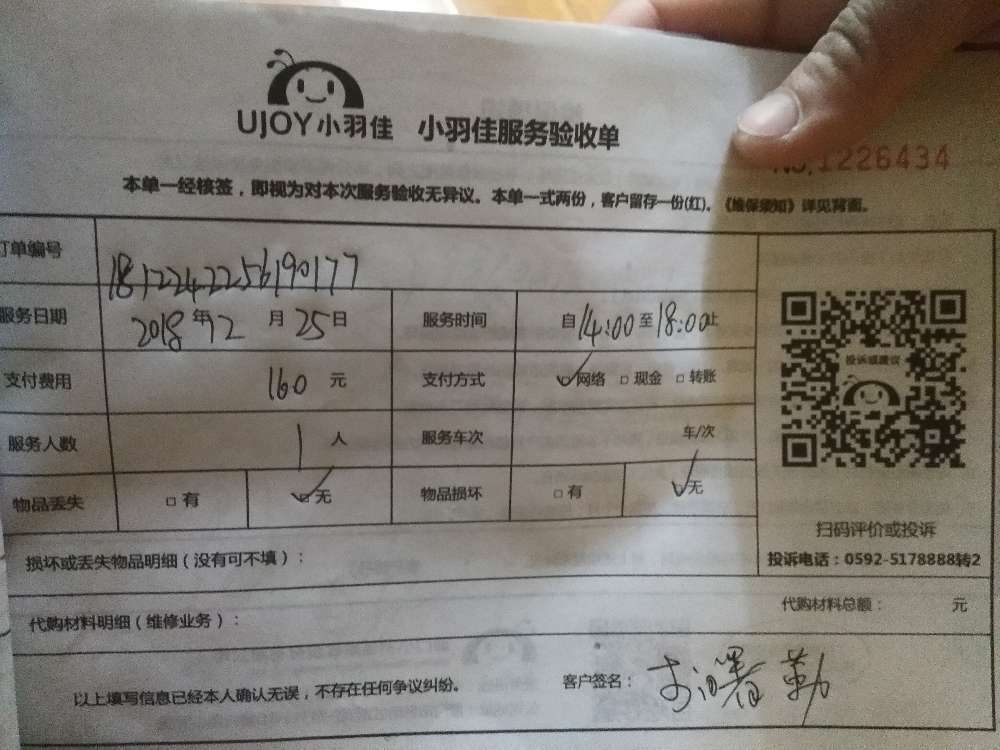 UJOY小羽佳 小羽佳服务验收单
NO.1226434
本单一经核签，即视为对本次服务验收无异议。本单一式两份，客户留存一份(红)。《维保须知》详见背面。
订单编号 1812242256190177
服务日期 2018年12月25日 服务时间 自14:00至18:00止
支付费用 160元 支付方式 ☑网络 □现金 □转账
服务人数 1人 服务车次 车/次
物品丢失 □有 ☑无 物品损坏 □有 ☑无
投诉或建议
扫码评价或投诉
投诉电话：0592-5178888转2
损坏或丢失物品明细（没有可不填）：
代购材料明细（维修业务）： 代购材料总额： 元
以上填写信息已经本人确认无误，不存在任何争议纠纷。 客户签名：